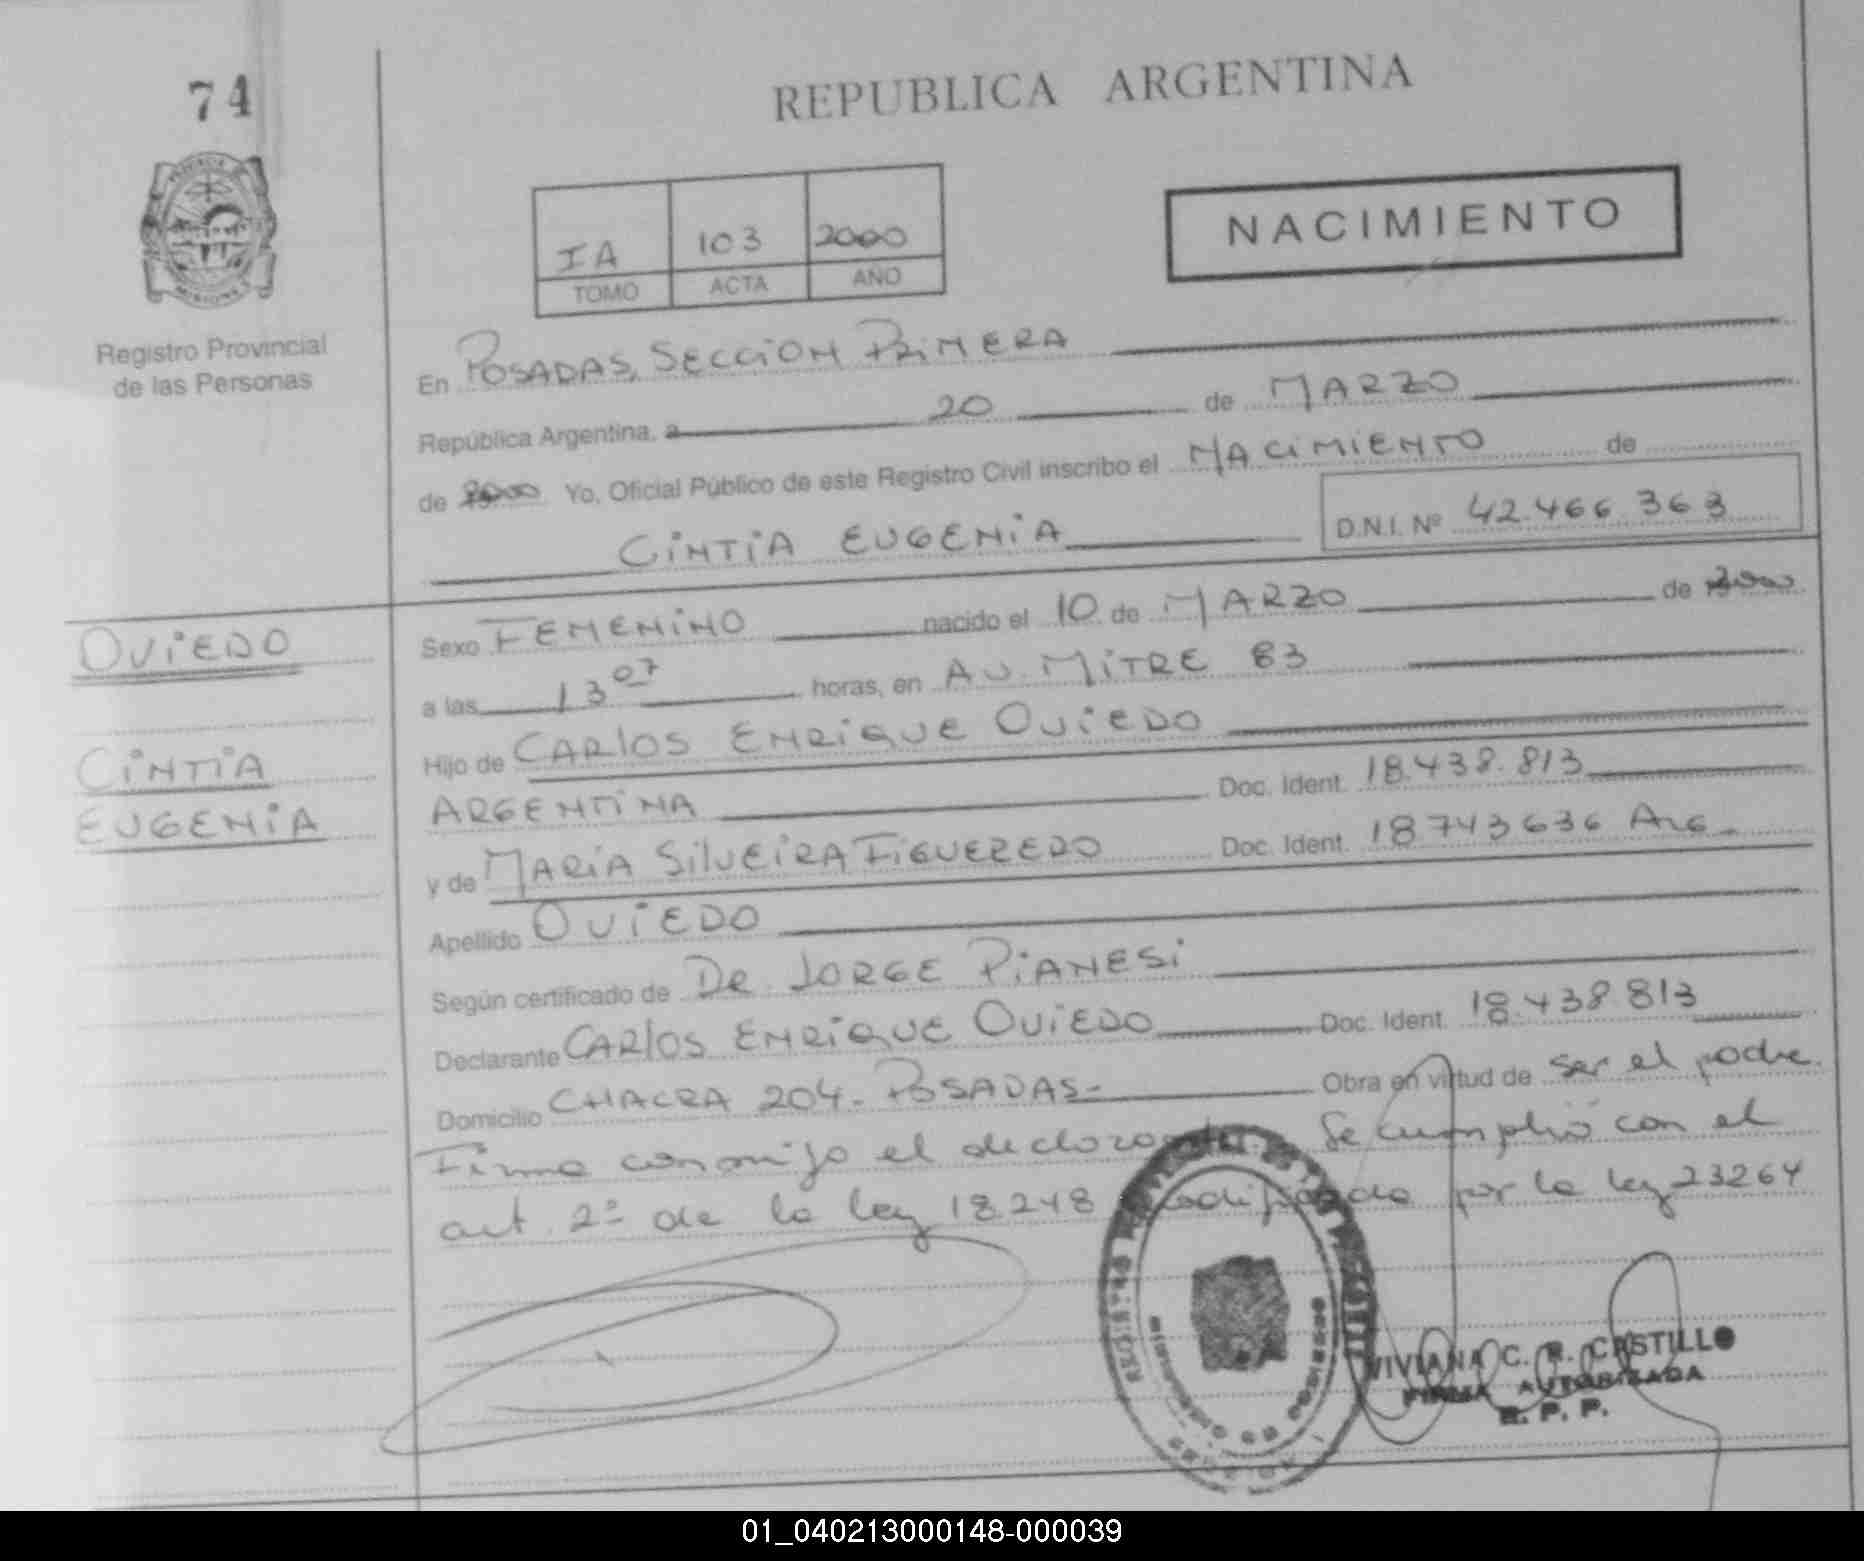 74
REPUBLICA ARGENTINA
IA 103 2000
TOMO ACTA AÑO
NACIMIENTO
MISIONES
Registro Provincial
de las Personas
En POSADAS, SECCION PRIMERA
República Argentina, a 20 de MARZO
de 2000 Yo, Oficial Público de este Registro Civil inscribo el NACIMIENTO de
CINTIA EUGENIA D.N.I. Nº 42.466.363
OVIEDO
CINTIA
EUGENIA
Sexo FEMENINO nacido el 10 de MARZO de 2000
a las 13 07 horas, en AV. MITRE 83
Hijo de CARLOS ENRIQUE OVIEDO
ARGENTINA Doc. Ident. 18.438.813
y de MARIA SILVEIRA FIGUEREDO Doc. Ident. 18743636 ARG-
Apellido OVIEDO
Según certificado de DR JORGE PIANESI
Declarante CARLOS ENRIQUE OVIEDO Doc. Ident. 18.438.813
Domicilio CHACRA 204- POSADAS- Obra en virtud de ser el padre.
Firma conmigo el declarante. Se cumplió con el
art. 2º de la ley 18.248 modificada por la ley 23264
VIVIANA C. R. CASTILLO
FIRMA AUTORIZADA
R. P. P.
01_040213000148-000039